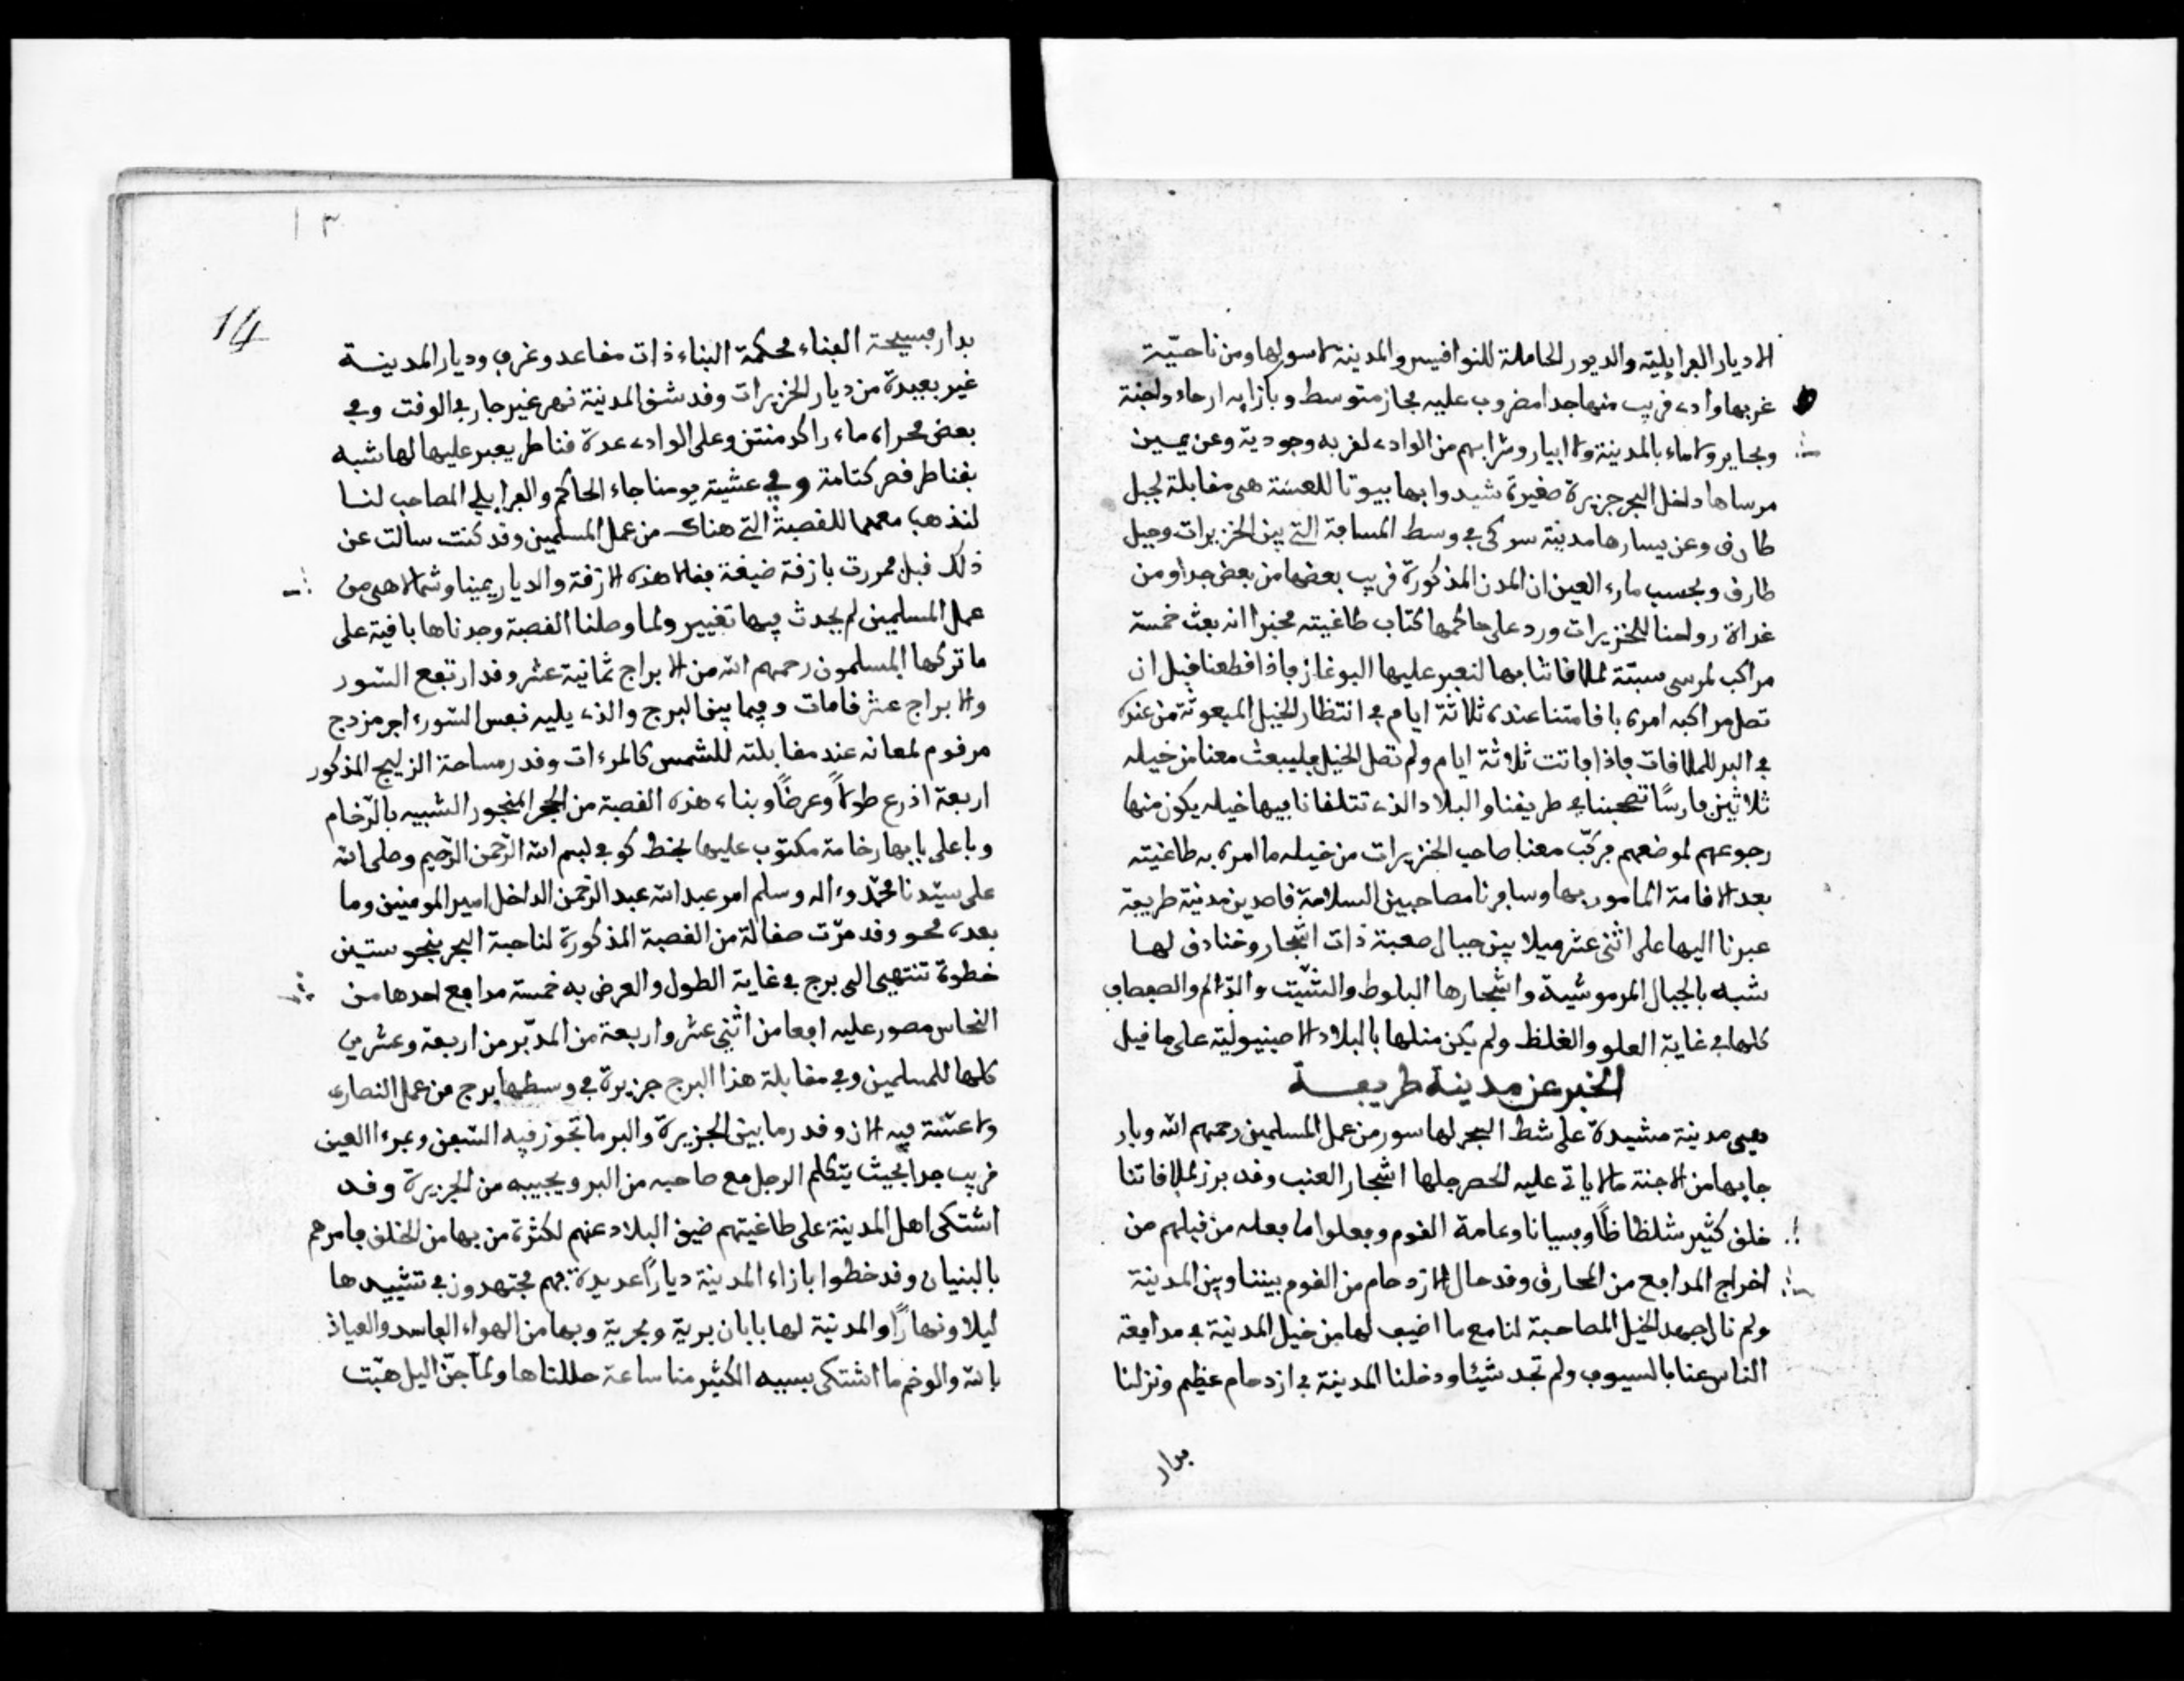 الا ديار الفرايلية والديور الحاملة للنواقيس والمدينة لا سور لها ومن ناحيّة
غربها واد قريب منها جدا مضروب عليه مجاز متوسط وبازايه ارحاء واجنة
وبحاير ولا ماء بالمدينة ولا ابيار وشرابهم من الوادي لقربه وجوديه وعن يمين
مرساها داخل البحر جزيرة صغيرة شيدوا بها بيوتا للعسّة هي مقابلة لجبل
طارق وعن يسارها مدينة سوكى في وسط المسافة التي بين الخزيرات وجبل
طارق وبحسب مارء العين ان المدن المذكورة قريب بعضها من بعض جدا ومن
غداة رواحنا للخزيرات ورد على حاكمها كتاب طاغيته مخبرا انه بعث خمسة
مراكب لمرسى سبتة لملاقاتنا بها لنعبر عليها البوغاز فاذا قطعنا قبل ان
تصل مراكبه امره باقامتنا عنده ثلاثة ايام في انتظار الخيل المبعوثة من عنده
في البر للملاقات فاذا فاتت ثلاثة ايام ولم تصل الخيل فليبعث معنا من خيله
ثلاثين فارسًا تصحبنا في طريقنا والبلاد الذي تتلقانا فيها خيله يكون منها
رجوعهم لموضعهم فركّب معنا صاحب الخزيرات من خيله ما امره به طاغيته
بعد الاقامة المامور بها وسافرنا مصاحبين السلامة قاصدين مدينة طريفة
عبرنا اليها على اثنى عشر ميلا بين جبال صعبة ذات اشجار وخنادق لها
شبه بالجبال المرموشيّة واشجارها البلوط والشّيت والدّالم والصفصاف
كلها في غاية العلو والغلظ ولم يكن مثلها بالبلاد الاصبنيولية على ما قيل
الخبر عن مدينة طريفة
وهي مدينة مشيدة على شط البحر لها سور من عمل المسلمين رحمهم الله وبار
جابها من الاجنة ما لا ياتي عليه الحصر جلها اشجار العنب وقد برز لملاقاتنا
خلق كثير شلظاظًا وفسيانا وعامة القوم وفعلوا ما فعله من قبلهم من
اخراج المدافع من المحارق وقد حال الازدحام من القوم بيننا وبين المدينة
ولم نال جهد الخيل المصاحبة لنا مع ما اضيف لها من خيل المدينة في مدافعة
الناس عنا بالسيوف ولم تجد شيئا ودخلنا المدينة في ازدحام عظيم ونزلنا
بدار
١٣
14
بدار فسيحة الفناء محكمة البناء ذات مقاعد وغرف وديار المدينة
غير بعيدة من ديار الخزيرات وقد شق المدينة نهر غير جار في الوقت وفي
بعض مجراه ماء راكد منتن وعلى الوادي عدة قناطر يعبر عليها لها شبه
بقناطر قصر كتامة وفي عشية يومنا جاء الحاكم والفرايلي المصاحب لنا
لنذهب معهما للقصبة التي هناك من عمل المسلمين وقد كنت سالت عن
ذلك قبل مررت بازقة ضيقة فقال هذه الازقة والديار يمينا وشمالا هي من
عمل المسلمين لم يحدث فيها تغيير ولما وصلنا القصبة وجدناها باقية على
ما تركها المسلمون رحمهم الله من الابراج ثمانية عشر وقد ارتفع السّور
والابراج عشر قامات وفيما بين البرج والذي يليه نفس السّور ءاجر مزدج
مرقوم لمعانه عند مقابلته للشمس كالمرءات وقدر مساحة الزليج المذكور
اربعة اذرع طولًا وعرضًا وبناء هذه القصبة من الحجر المنجور الشبيه بالرّخام
وباعلى بابها رخامة مكتوب عليها بخط كوفي بسم الله الرّحمن الرّحيم وصلى الله
على سيّدنا محمّد وءاله وسلم امر عبد الله عبد الرّحمن الداخل امير المومنين وما
بعده محو وقد مرّت صقالة من القصبة المذكورة لناحية البحر بنحو ستين
خطوة تنتهي الى برج في غاية الطول والعرض به خمسة مدافع احدها من
النحاس مصور عليه افعا من اثنى عشر واربعة من المدبّر من اربعة وعشرين
كلها للمسلمين وفي مقابلة هذا البرج جزيرة في وسطها برج من عمل النصارى
ولا عسّة فيه الان وقدر ما بين الجزيرة والبر ما تجوز فيه السّفن وبمرءا العين
قريب جدا بحيث يتكلم الرجل مع صاحبه من البر ويجيبه من الجزيرة وقد
اشتكى اهل المدينة على طاغيتهم ضيق البلاد عنهم لكثرة من بها من الخلق فامرهم
بالبنيان وقد خطوا بازاء المدينة ديارًا عديدة فهم مجتهدون في تشييدها
ليلا ونهارًا والمدينة لها بابان برية وبحرية وبها من الهواء الفاسد والعياذ
بالله والوخم ما اشتكى بسببه الكثير منا ساعة حللناها ولمّا جنّ اليل هبّت